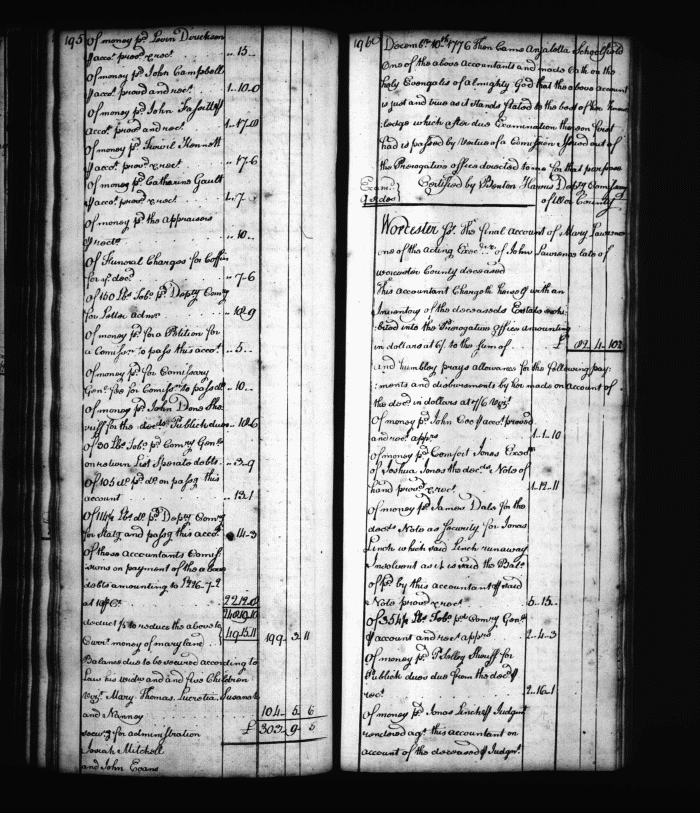 195
Of money pd. Levin Dirickson
⅌ accot. provd. & rect. .. 15 ..
Of money pd. John Campbell
⅌ accot. proved and rect. 1..10..0
Of money pd. John
Accot. proved and rect. 1..17..0
Of money pd. Kennett
⅌ accot. provd. & rect. .. 17..6
Of money pd. Catharine Gault
⅌ accot. provd. & rect. 1..7..
Of money pd. the Appraisers
⅌ rects. .. 10 ..
Of Funeral Charges for Coffin
for ye. decd. .. 7..6
Of 150 lbs. Tobo. pd. Depty. Comry.
for Letter Admr.
Of money pd. for a Petition for
a Comission to pass this accot. .. 5 ..
Of money pd. for Comissary
Genl. fee for Comissn. to pass do. .. 10 ..
Of money pd. John Done She
riff for the decds. Publick dues .. 10..6
Of 30 lbs. Tobo. pd. Comry. Genl.
on return List Sperate debts .. 3..9
Of 105 do. pd. do. on passg. this
account .. 13..1
Of 114 lbs. do. pd. Depty. Comry.
for Statg. and passg. this accot. .. 14..3
Of these Accountants Comis
sions on payment of the above
debts amounting to
at 10 ⅌ Ct. 22..12..8
deduct ⅙ to reduce the above to
Currt. money of maryland 49..15..11 199..3..11
Balance due to be secured according to
Law his widow and five Children
vizt. Mary Thomas Lucretia Susanah
and Nanney 104..5..6
£ 303..9..5
secury. for administration
Josiah Mitchell
and John Evans
196
Decembr. 10th. 1776 Then Came Schoolfield
One of the above Accountants and made Oath on the
Holy Evangels of almighty God that the above account
is just and true as it Stands Stated to the best of her know
ledge which after due Examination thereon first
had is passed by Vertue of a Comission Issued out of
the Prerogative office directed to me for that purpose
Examd. Certified by Benton Harris Depty. Comissary
of Wor County
Worcester Ss. The final account of Mary Lawrence
one of the Acting Execrix. of John Lawrence late of
Worcester County deceased
This Accountant Chargeth herself with an
Inventory of the deceaseds Estate exhi
bited into the Prerogative Office amounting
in dollars at 6/ to the sum of £
and humbley prays allowance for the following pay:
:ments and disbursments by her made on account of
the decd. in dollars at 7/6 vizt.
Of money pd. John Coe ⅌ accot. proved
and rect. apprs. 1..1..10
Of money pd. Comfort Jones Execx.
of Joshua Jones the decds. Note of
hand provd. & rect. 4..12..11
Of money pd. James Dals for the
decds. Note as Security for Jonas
Linch which said Linch runaway
Insolvent as it is said the Bale.
of pd. by this accountant ⅌ said
Note proved & rect. 5..15..
Of 354½ lbs. Tobo. pd. Comry. Genl.
⅌ account and rect. apprs. 2..4..3
Of money pd. P Selbey Sheriff for
Publick dues due from the decd. ⅌
rect. 2..16..1
Of money pd. Jonas Linch ⅌ Judgmt.
rendered agt. this accountant on
account of the deceased ⅌ Judgmt.